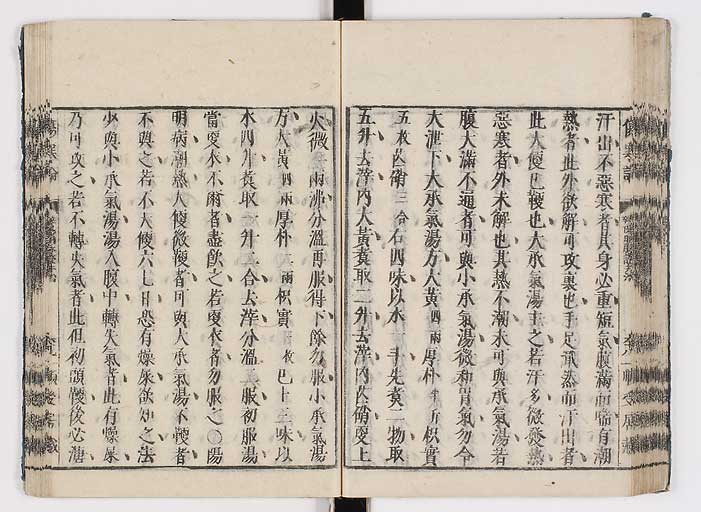 汗出不惡寒者其身必重短氣腹滿而喘有潮
熱者此外欲解可攻裏也手足濈然而汗出者
此大便已鞕也大承氣湯主之若汗多微發熱
惡寒者外未解也其熱不潮未可與承氣湯若
腹大滿不通者可與小承氣湯微和胃氣勿令
大泄下大承氣湯方大黃四兩厚朴半斤枳實
五枚芒硝三合右四味以水一斗先煑二物取
五升去滓內大黃煑取二升去滓內芒硝更上
火微一兩沸分溫再服得下餘勿服小承氣湯
方大黃四兩厚朴二兩枳實三枚已上三味以
水四升煑取一升二合去滓分溫二服初服湯
當更衣不爾者盡飮之若更衣者勿服之〇陽
明病潮熱大便微鞕者可與大承氣湯不鞕者
不與之若不大便六七日恐有燥屎欲知之法
少與小承氣湯湯入腹中轉失氣者此有燥屎
乃可攻之若不轉失氣者此但初頭鞕後必溏
傷寒論